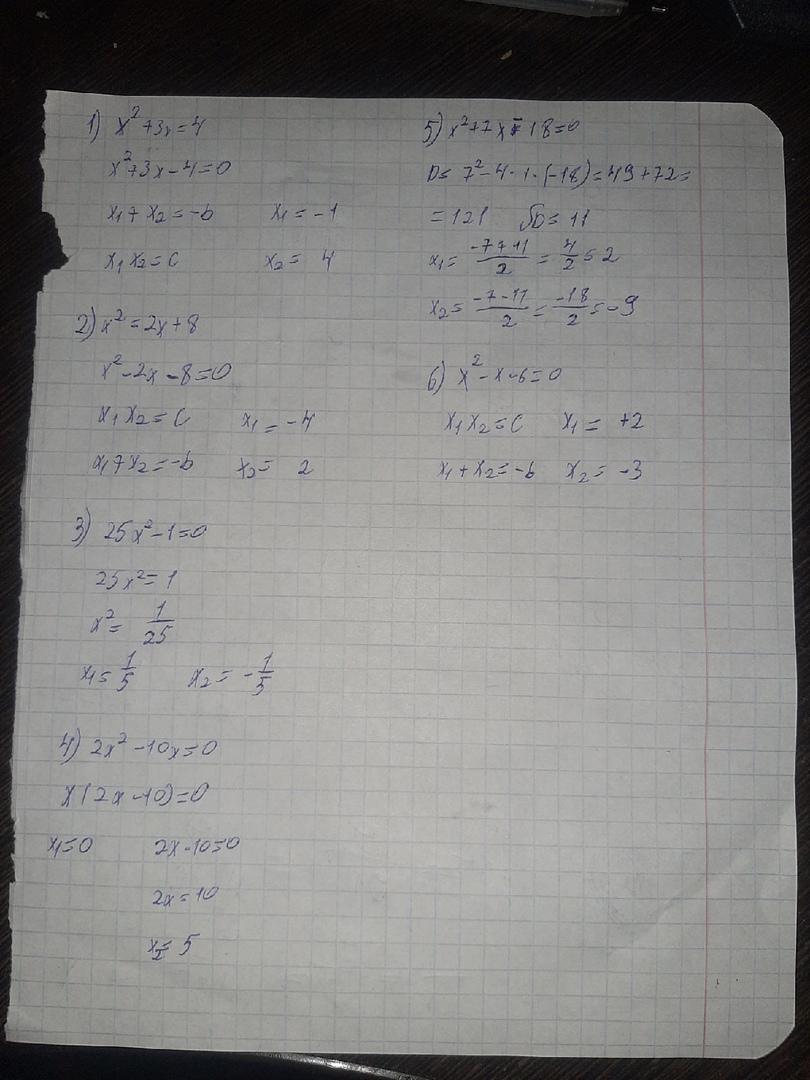 1) x² + 3x = 4
x² + 3x - 4 = 0
x₁ + x₂ = -b x₁ = -1
x₁ x₂ = c x₂ = 4
2) x² = 2x + 8
x² - 2x - 8 = 0
x₁ x₂ = c x₁ = -4
x₁ + x₂ = -b x₂ = 2
3) 25x² - 1 = 0
25x² = 1
x² = 1/25
x₁ = 1/5 x₂ = -1/5
4) 2x² - 10x = 0
x(2x - 10) = 0
x₁ = 0 2x - 10 = 0
2x = 10
x₂ = 5
5) x² + 7x - 18 = 0
D = 7² - 4 · 1 · (-18) = 49 + 72 =
= 121 √D = 11
x₁ = (-7 + 11)/2 = 4/2 = 2
x₂ = (-7 - 11)/2 = -18/2 = -9
6) x² - x - 6 = 0
x₁ x₂ = c x₁ = +2
x₁ + x₂ = -b x₂ = -3